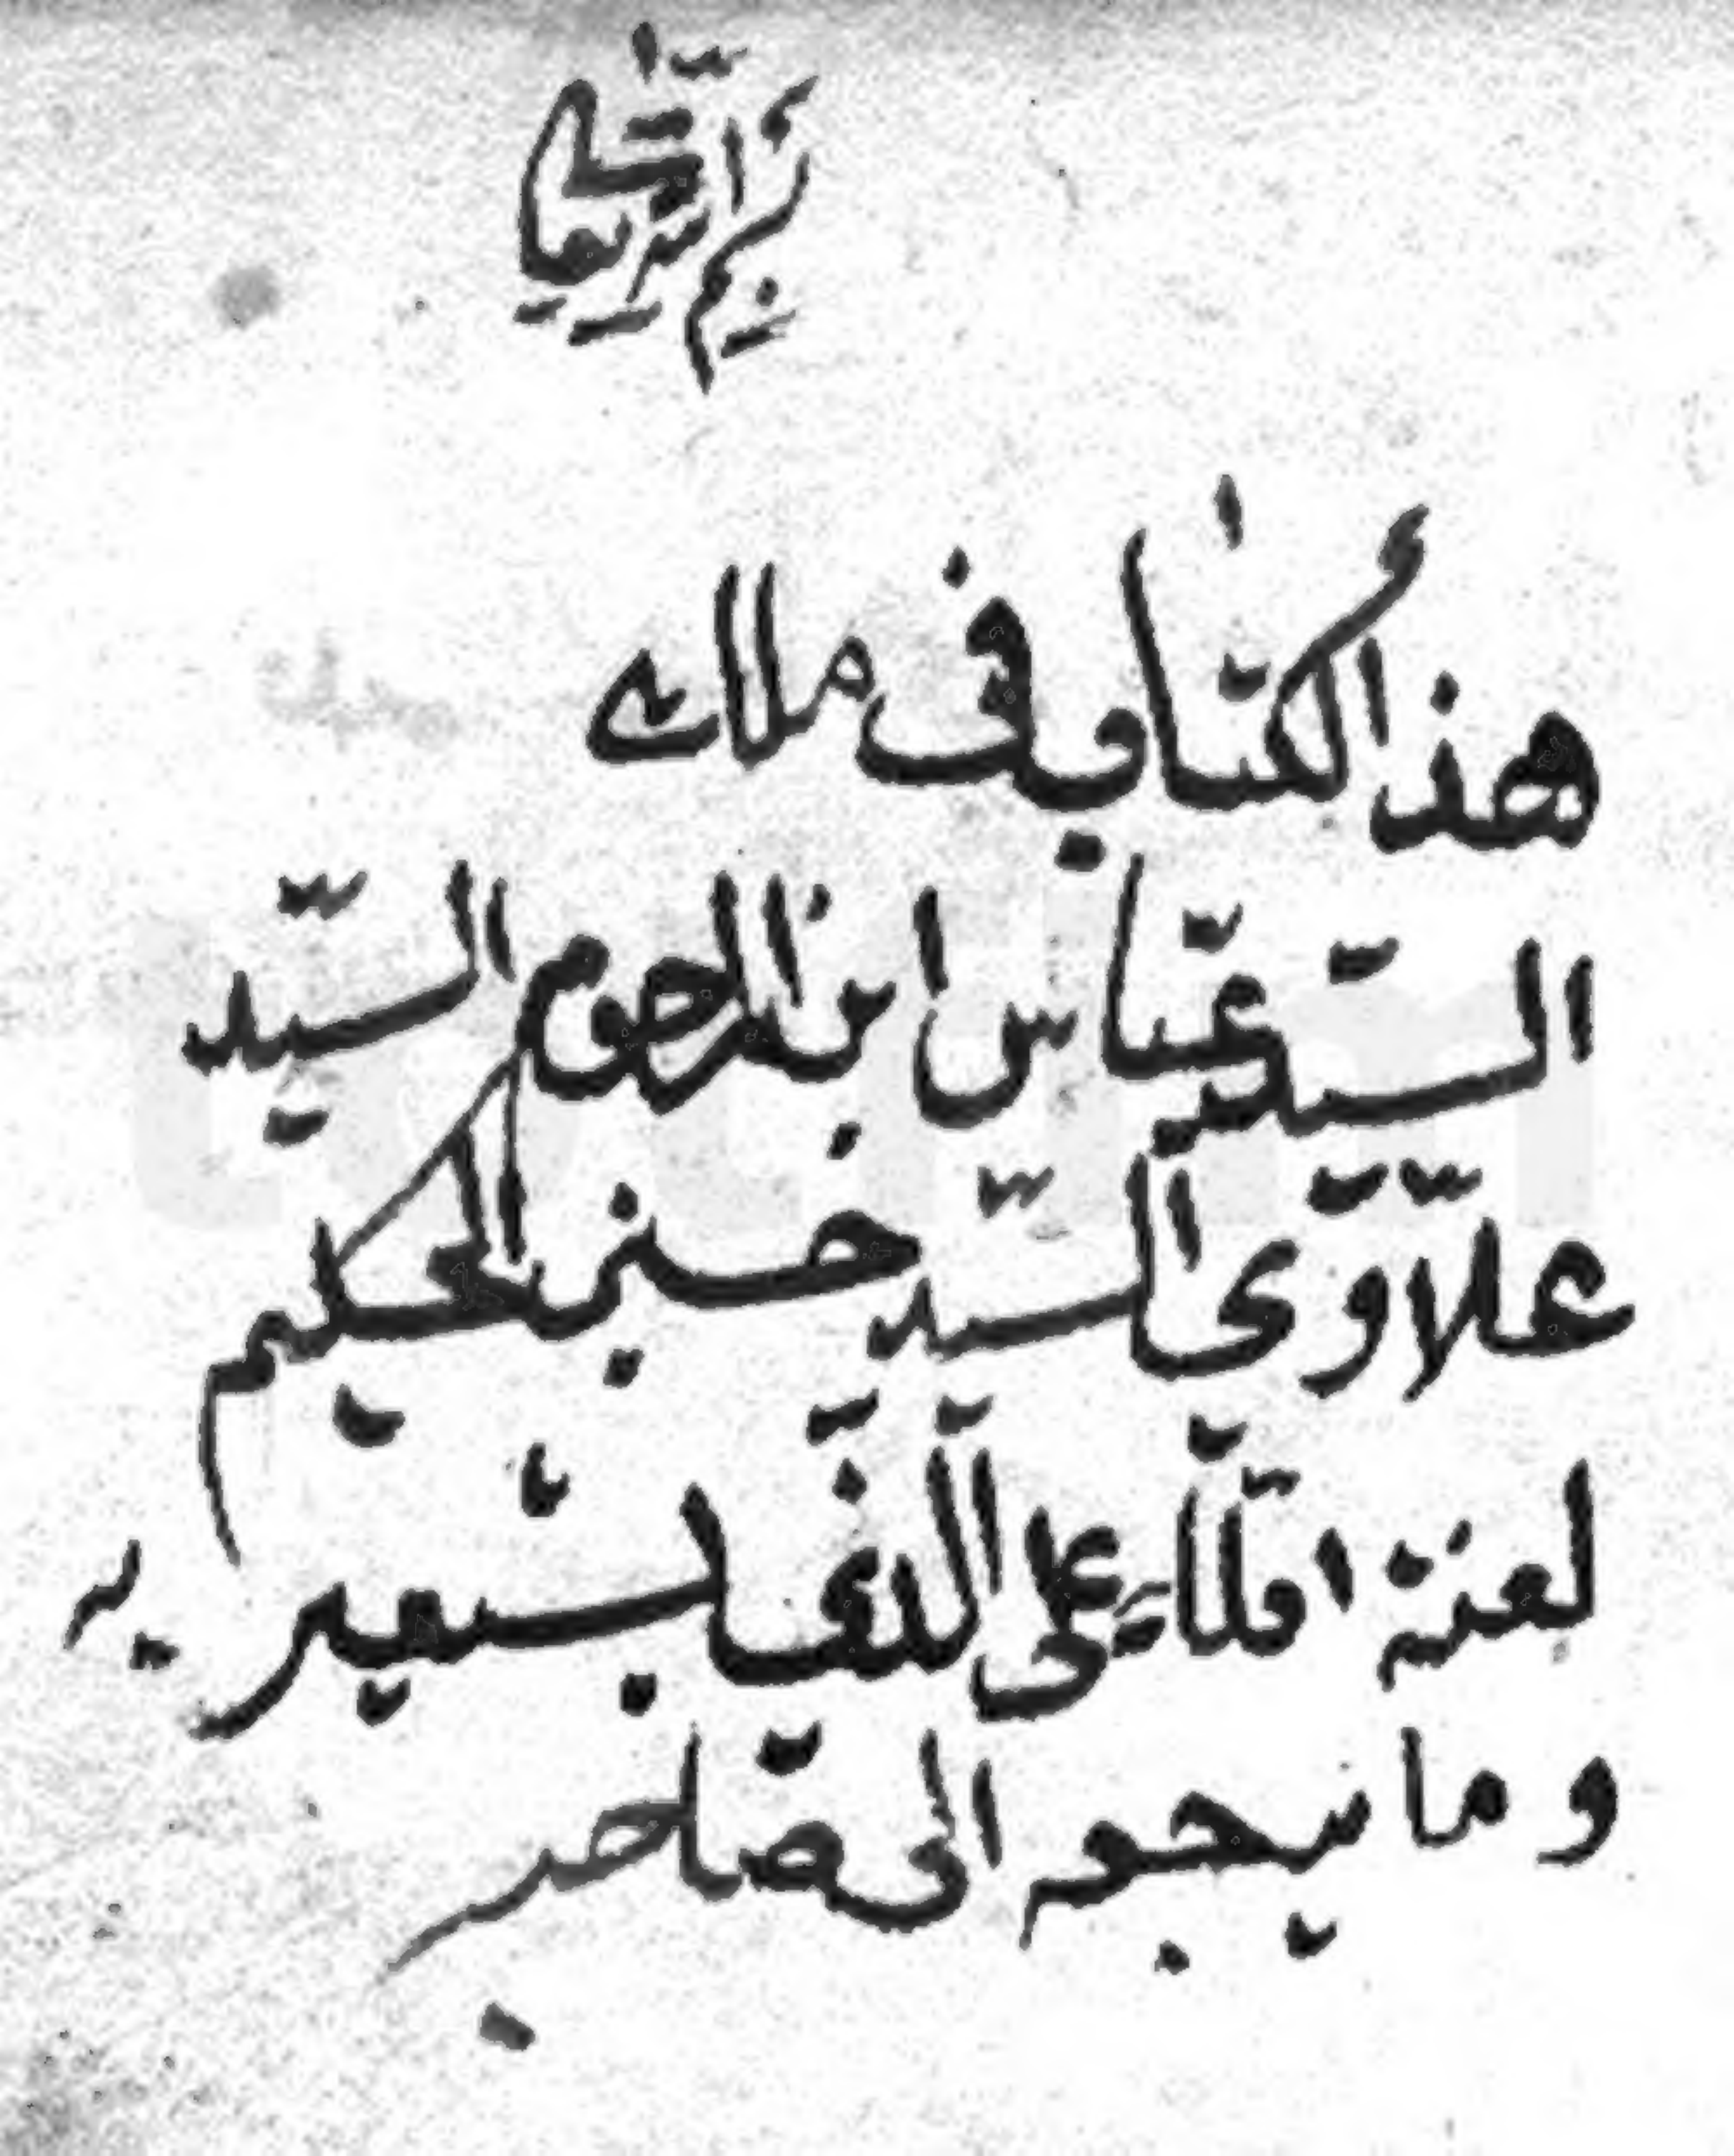 بسم الله تعالى
هذا الكتاب في ملاك
السيّد عبّاس ابن المرحوم السيّد
علّاوي السيّد حسين الحكيم
لعنة اللّٰه على الّذي يستعيره
وما يرجعه الى صاحبه